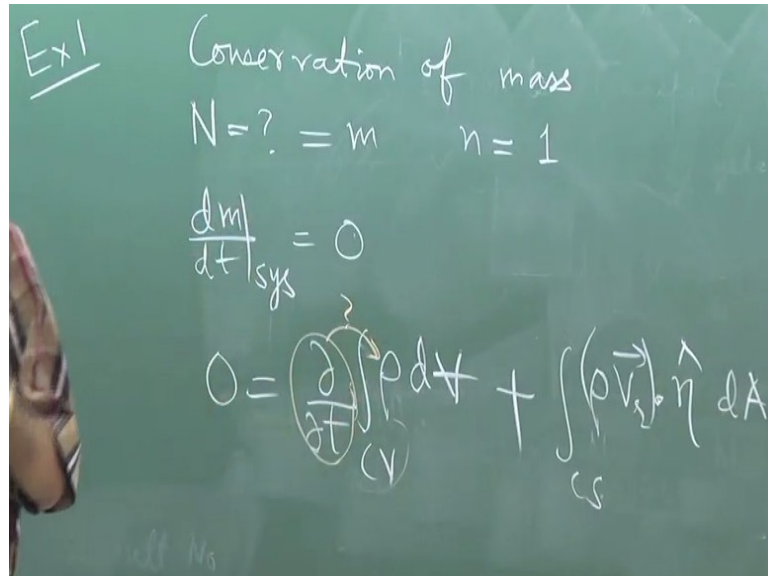 Ex1
Conservation of mass
N = ? = m n = 1
dm/dt|sys = 0
?
0 = ∂/∂t ∫CV ρ dV + ∫CS (ρ V⃗r)·η̂ dA